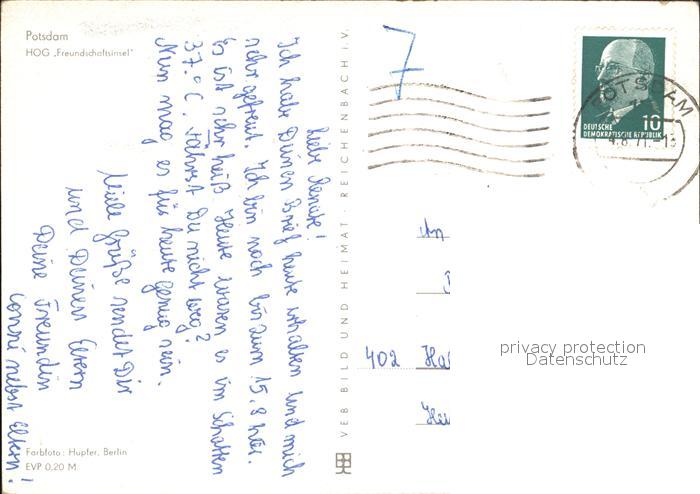 Potsdam
HOG „Freundschaftsinsel"
Liebe Renate!
Ich habe Deinen Brief heute erhalten und mich
sehr gefreut. Ich bin noch bis zum 15.8 hier.
Es ist sehr heiß. Heute waren es im Schatten
37.°C. Fährst Du nicht weg?
Nun mag es für heute genug sein.
Viele Grüße sendet Dir
und Deinen Eltern
Deine Freundin
Conni nebst Eltern!
Farbfoto: Hupfer, Berlin
EVP 0,20 M
VEB BILD UND HEIMAT · REICHENBACH i. V.
7
10
DEUTSCHE
DEMOKRATISCHE REPUBLIK
POTSDAM
4.8.71.-18
An
402 Hal
privacy protection
Datenschutz